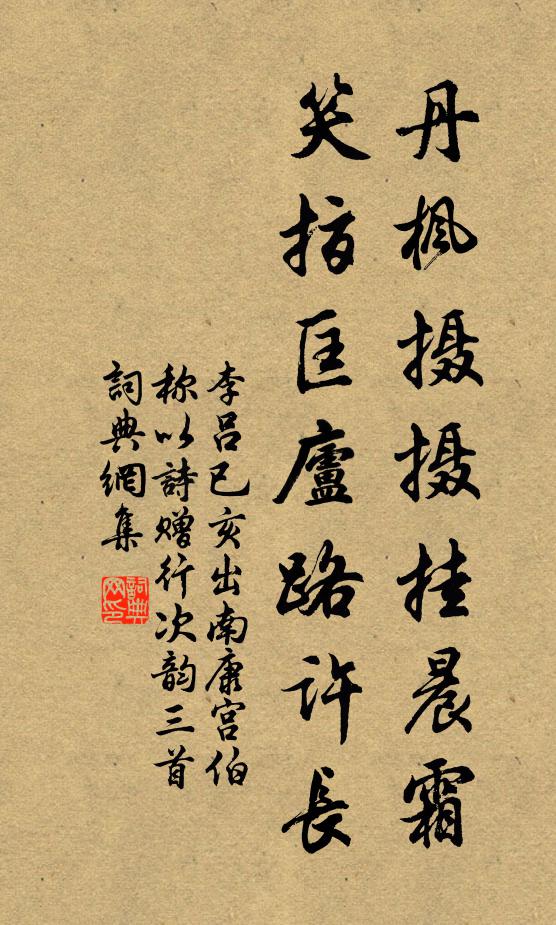 丹楓摄摄挂晨霜
笑指匡廬路许長
李吕已亥出南康宫伯
称以詩赠行次韵三首
詞典網集
詞典网印